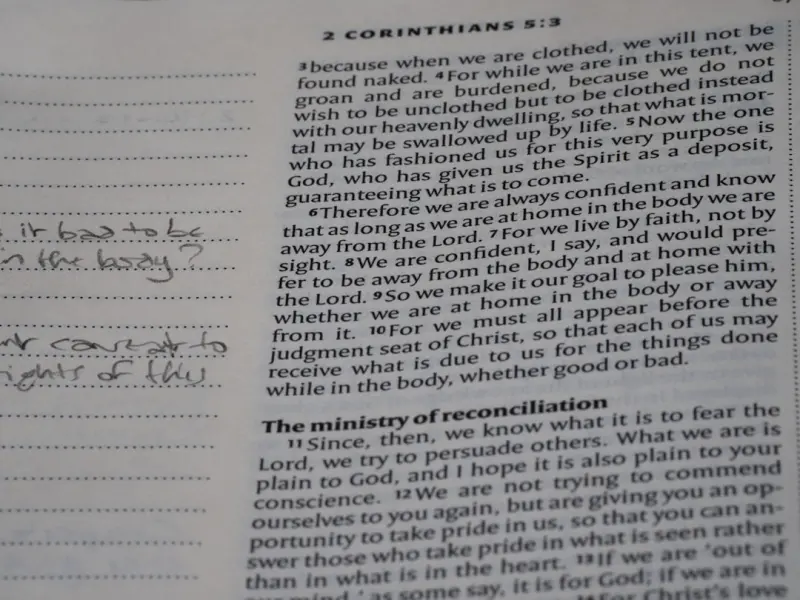 2 CORINTHIANS 5:3
3because when we are clothed, we will not be
found naked. 4For while we are in this tent, we
groan and are burdened, because we do not
wish to be unclothed but to be clothed instead
with our heavenly dwelling, so that what is mor-
tal may be swallowed up by life. 5Now the one
who has fashioned us for this very purpose is
God, who has given us the Spirit as a deposit,
guaranteeing what is to come.
6Therefore we are always confident and know
that as long as we are at home in the body we are
away from the Lord. 7For we live by faith, not by
sight. 8We are confident, I say, and would pre-
fer to be away from the body and at home with
the Lord. 9So we make it our goal to please him,
whether we are at home in the body or away
from it. 10For we must all appear before the
judgment seat of Christ, so that each of us may
receive what is due to us for the things done
while in the body, whether good or bad.
The ministry of reconciliation
11Since, then, we know what it is to fear the
Lord, we try to persuade others. What we are is
plain to God, and I hope it is also plain to your
conscience. 12We are not trying to commend
ourselves to you again, but are giving you an op-
portunity to take pride in us, so that you can an-
swer those who take pride in what is seen rather
than in what is in the heart. 13If we are ‘out of
our mind,’ as some say, it is for God; if we are in
14For Christ’s love
it bad to be
in the body?
to
rights of this